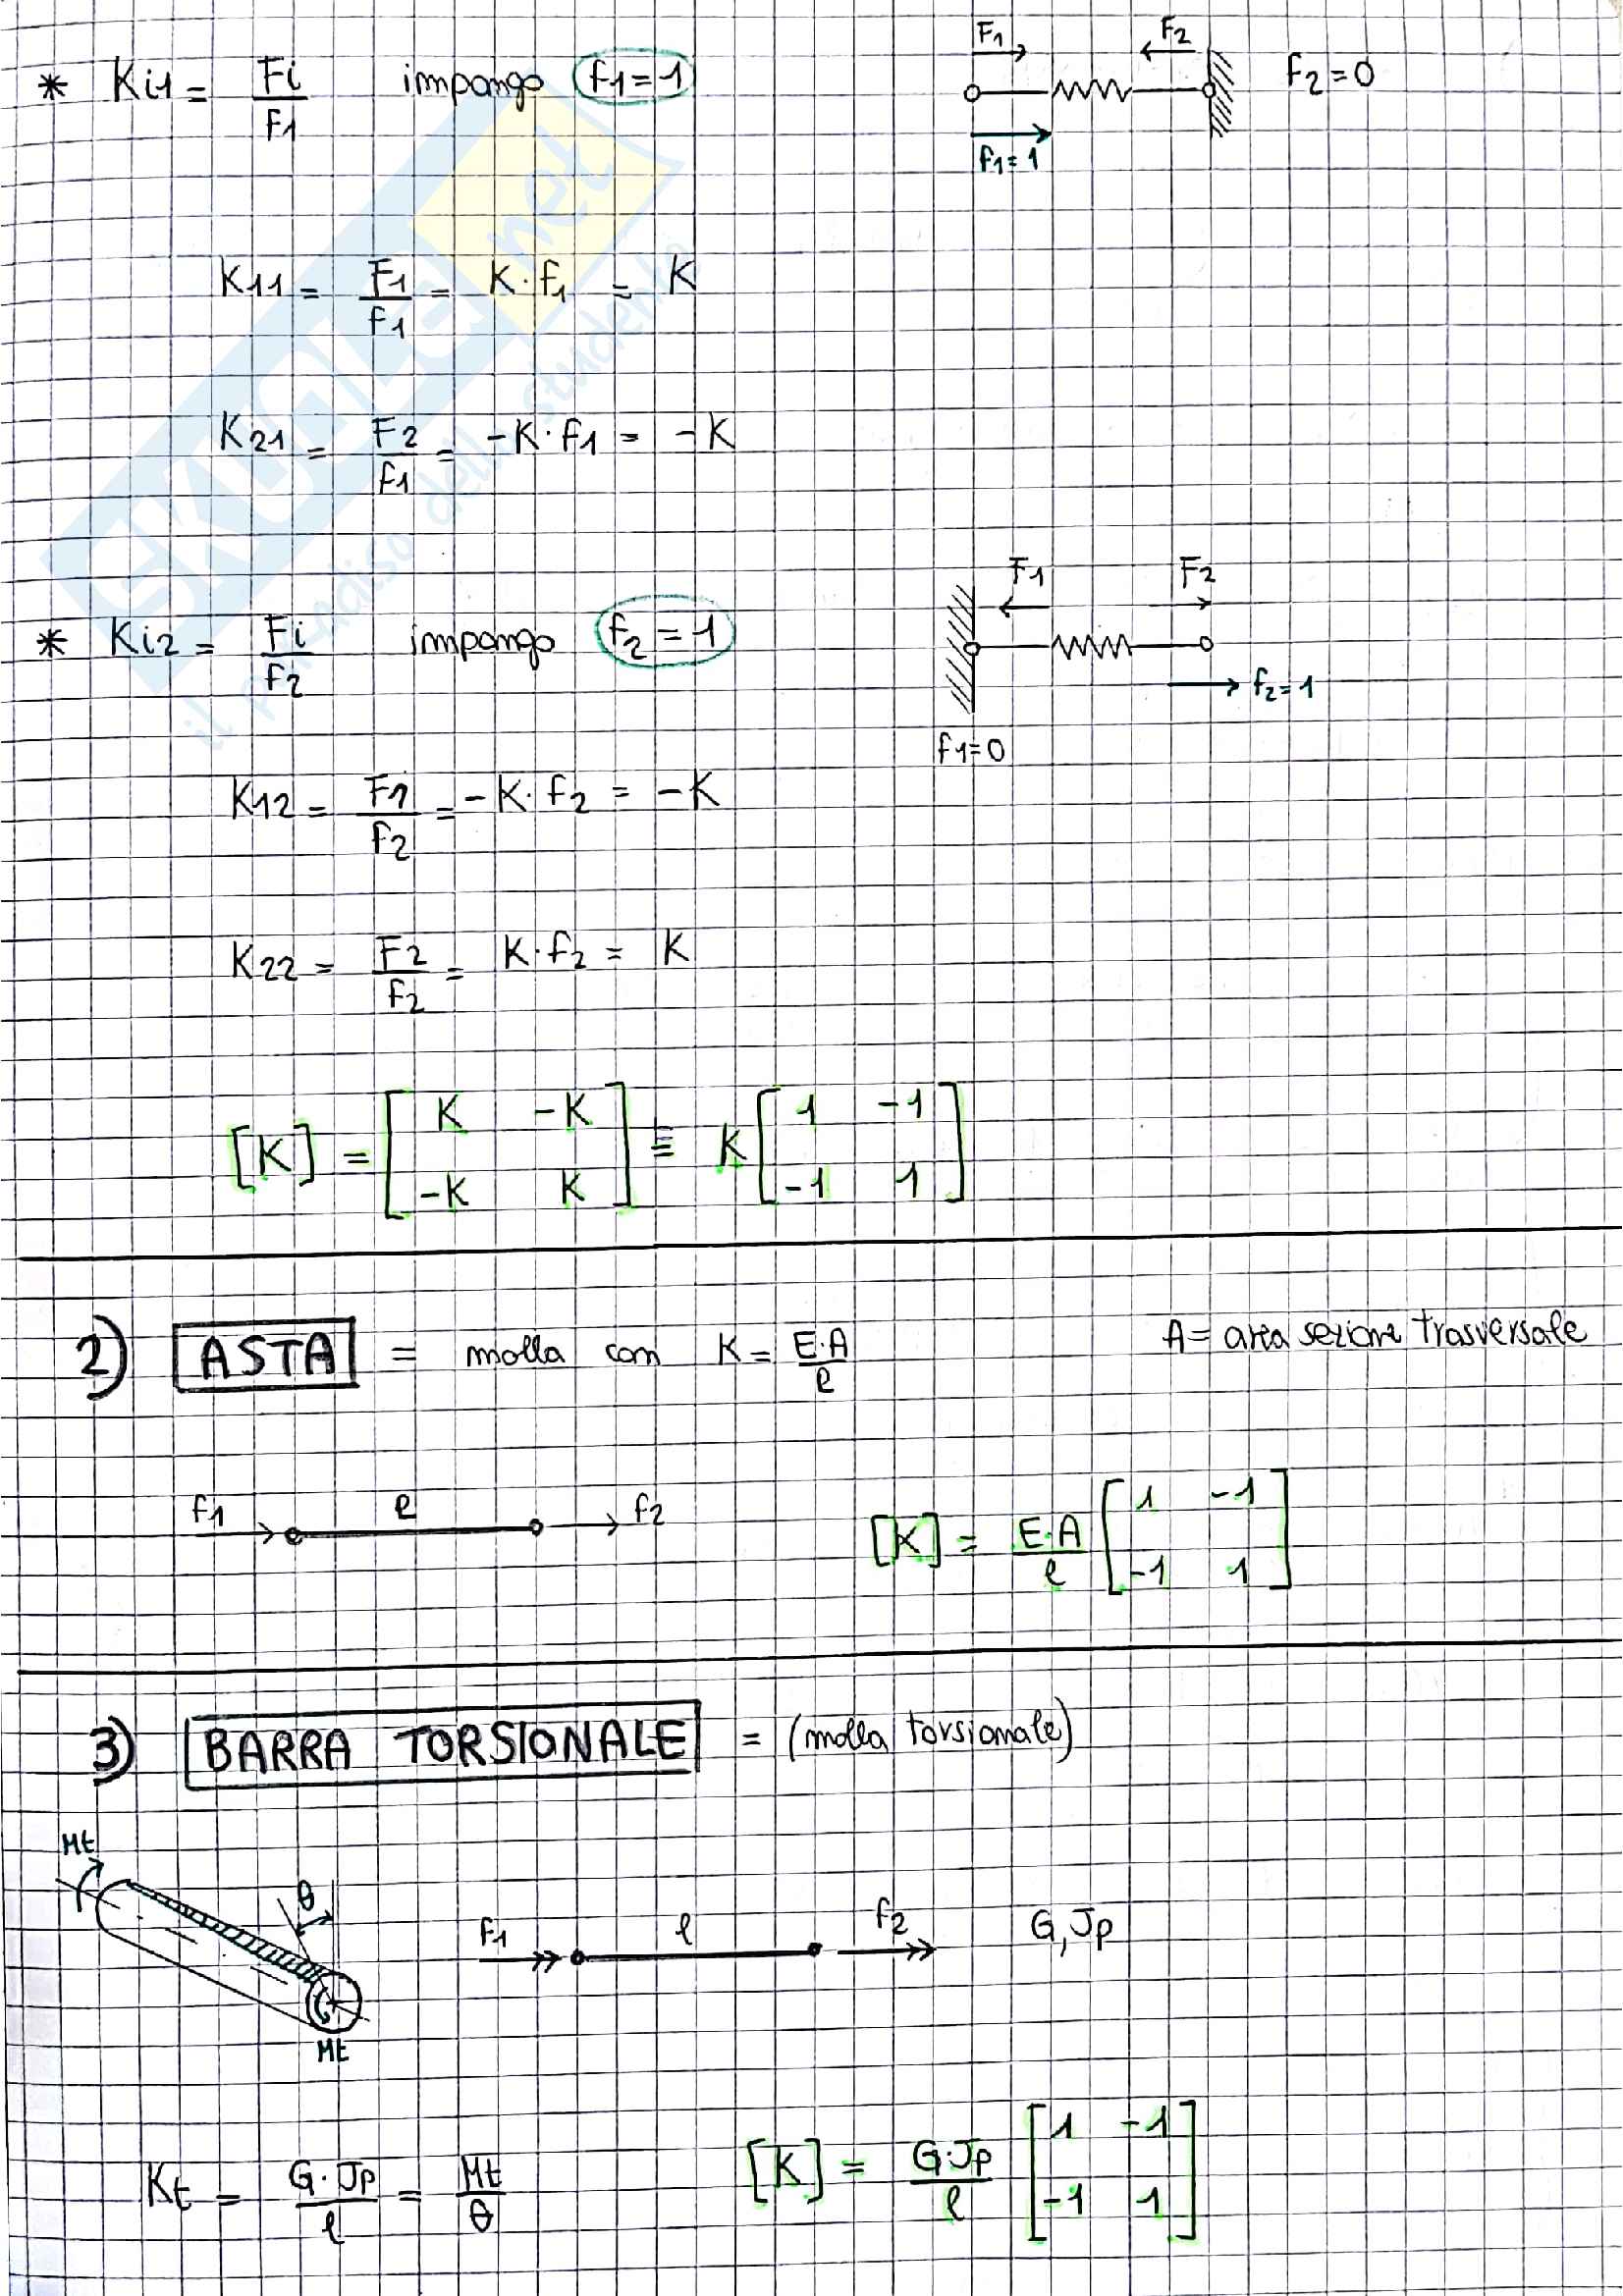 * Ki1 = Fi/f1 impongo f1=1
F1 F2 f2=0
f1=1
K11 = F1/f1 = K·f1 = K
K21 = F2/f1 = -K·f1 = -K
* Ki2 = Fi/f2 impongo f2=1
F1 F2
f2=1
f1=0
K12 = F1/f2 = -K·f2 = -K
K22 = F2/f2 = K·f2 = K
[K] = [K -K
-K K] ≡ K [1 -1
-1 1]
2) ASTA = molla con K = E·A/l A = area sezione trasversale
f1 l f2
[K] = E·A/l [1 -1
-1 1]
3) BARRA TORSIONALE = (molla torsionale)
Mt θ Mt
f1 l f2 G, Jp
Kt = G·Jp/l = Mt/θ
[K] = G·Jp/l [1 -1
-1 1]
SKUOLA.net
il paradiso dello studente